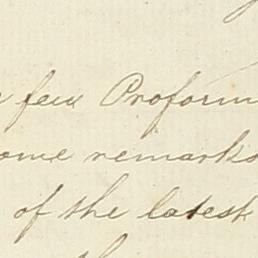 few Proform
ome remarks
of the latest